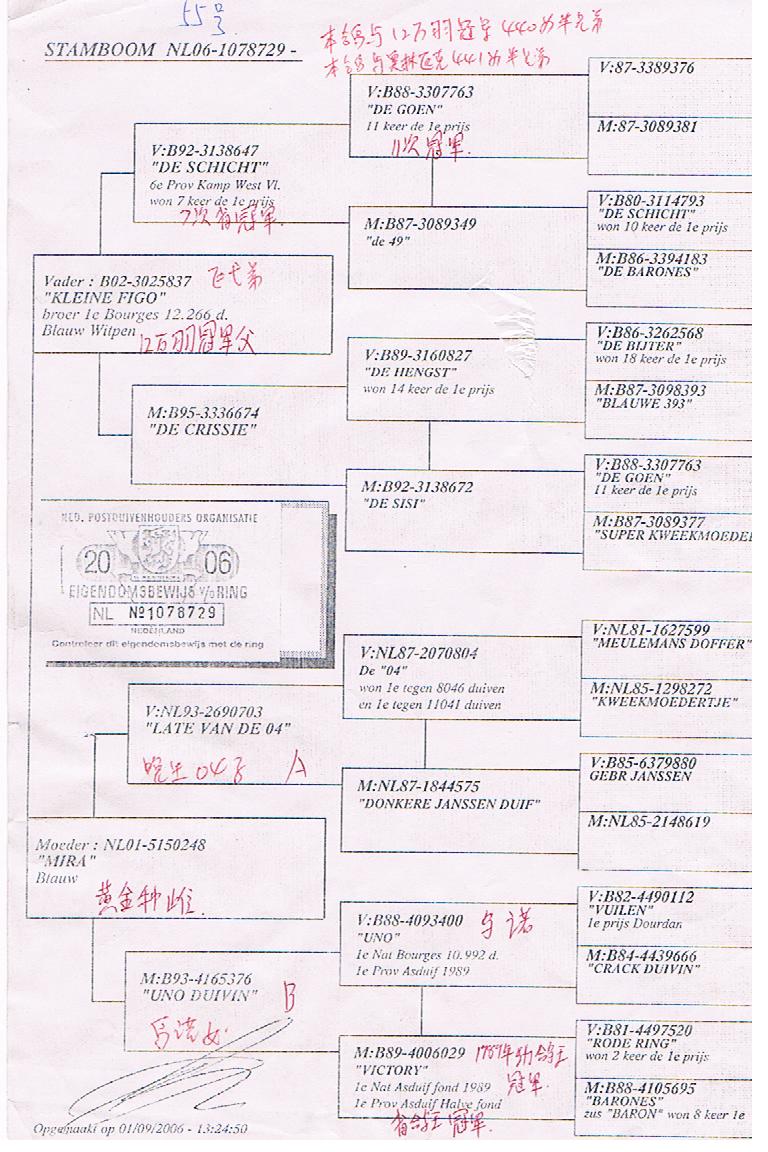 55号
3
STAMBOOM NL06-1078729 -
本鸽与12万羽冠军440为半兄弟
本鸽与奥林匹克441为半兄弟
V:87-3389376
M:87-3089381
V:B88-3307763
"DE GOEN"
11 keer de 1e prijs
11次冠军.
V:B92-3138647
"DE SCHICHT"
6e Prov Kamp West Vl.
won 7 keer de 1e prijs
7次省冠军.
M:B87-3089349
"de 49"
V:B80-3114793
"DE SCHICHT"
won 10 keer de 1e prijs
M:B86-3394183
"DE BARONES"
Vader : B02-3025837
"KLEINE FIGO"
broer 1e Bourges 12.266 d.
Blauw Witpen
12万羽冠军父
V:B89-3160827
"DE HENGST"
won 14 keer de 1e prijs
V:B86-3262568
"DE BIJTER"
won 18 keer de 1e prijs
M:B87-3098393
"BLAUWE 393"
M:B95-3336674
"DE CRISSIE"
M:B92-3138672
"DE SISI"
V:B88-3307763
"DE GOEN"
11 keer de 1e prijs
M:B87-3089377
"SUPER KWEEKMOEDE
NED. POSTDUIVENHOUDERS ORGANISATIE
20 06
EIGENDOMSBEWIJS v/o RING
NL Nº1078729
NEDERLAND
Controleer dit eigendomsbewijs met de ring
V:NL87-2070804
De "04"
won 1e tegen 8046 duiven
en 1e tegen 11041 duiven
V:NL81-1627599
"MEULEMANS DOFFER"
M:NL85-1298272
"KWEEKMOEDERTJE"
V:NL93-2690703
"LATE VAN DE 04"
晚生04号 A
M:NL87-1844575
"DONKERE JANSSEN DUIF"
V:B85-6379880
GEBR JANSSEN
M:NL85-2148619
Moeder : NL01-5150248
"MIRA"
Blauw
黄金种雌.
V:B88-4093400
"UNO"
1e Nat Bourges 10.992 d.
1e Prov Asduif 1989
V:B82-4490112
"VUILEN"
1e prijs Dourdan
M:B84-4439666
"CRACK DUIVIN"
M:B93-4165376
"UNO DUIVIN" B
M:B89-4006029
"VICTORY"
1e Nat Asduif fond 1989
1e Prov Asduif Halve fond
冠军.
省鸽王冠军.
V:B81-4497520
"RODE RING"
won 2 keer de 1e prijs
M:B88-4105695
"BARONES"
zus "BARON" won 8 keer 1e
Opgemaakt op 01/09/2006 - 13:24:50